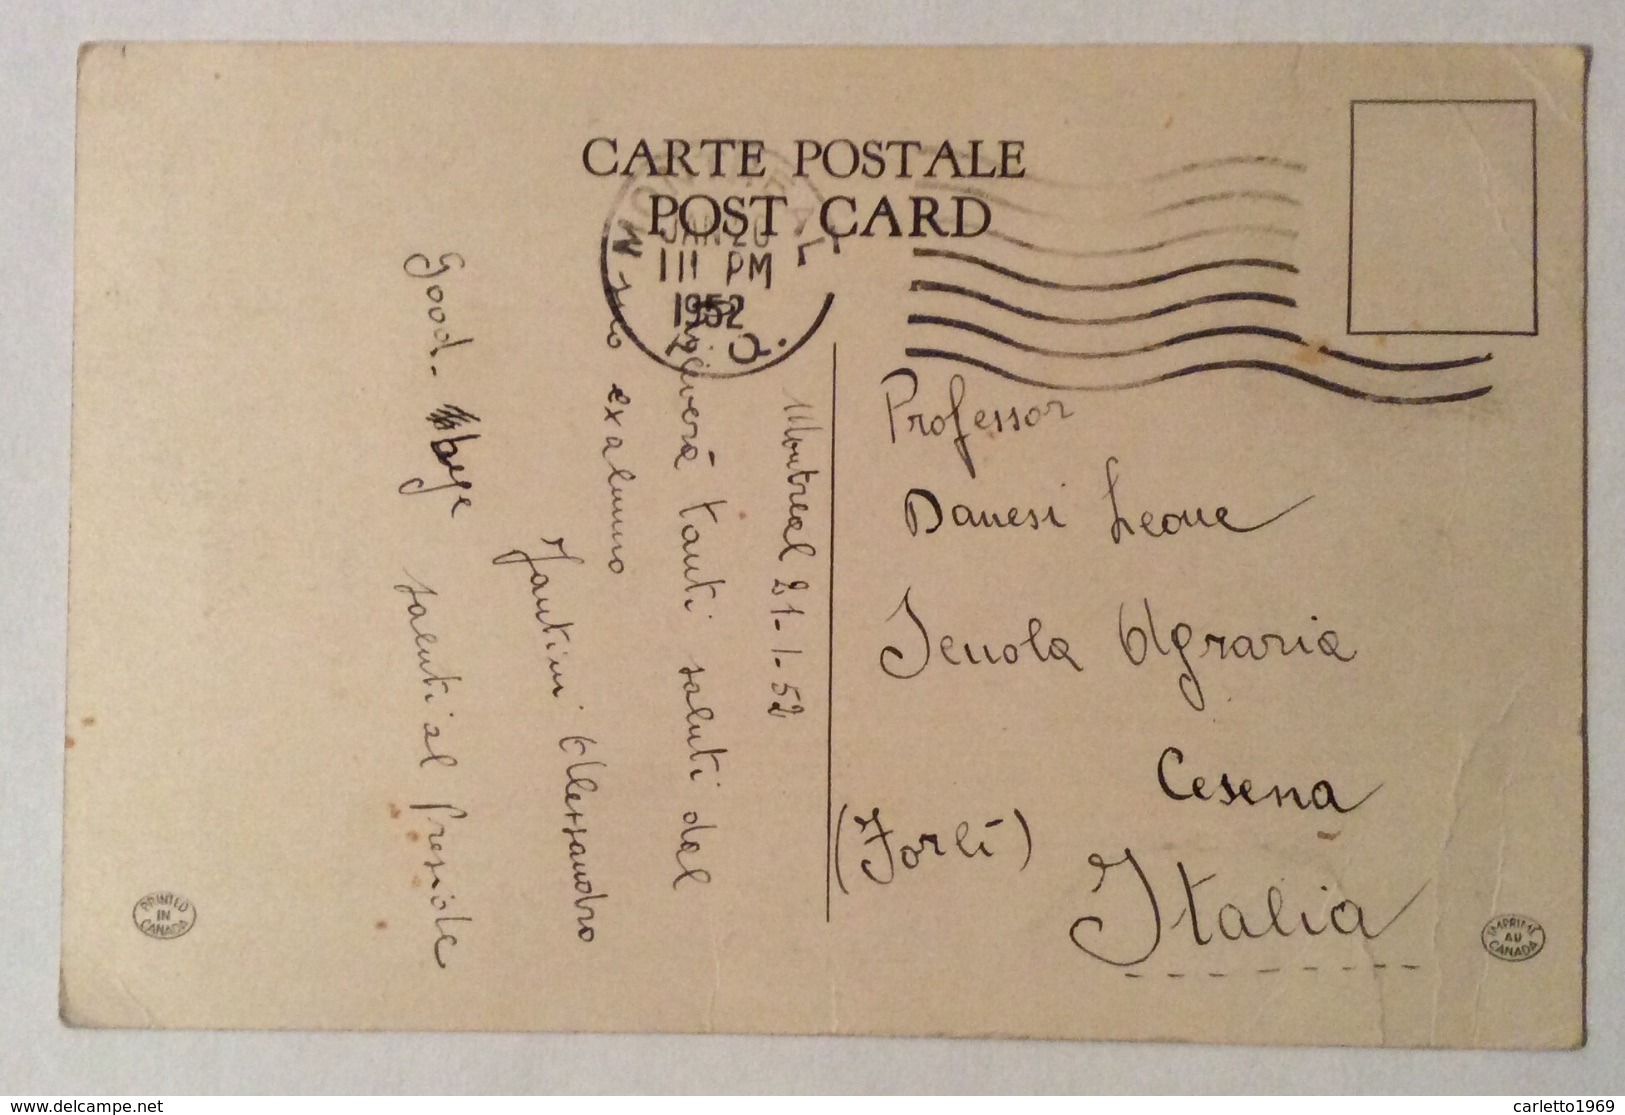 CARTE POSTALE
POST CARD
MONTREAL
JAN 20
11 PM
1952
P.Q.
Montreal 21-1-52
Riceverà tanti saluti dal
suo exalunno
Fantini Alessandro
Good-bye
saluti al Preside
Professor
Danesi Leone
Scuola Agraria
Cesena
(Forlì)
Italia
PRINTED
IN
CANADA
IMPRIMÉ
AU
CANADA
www.delcampe.net
carletto1969